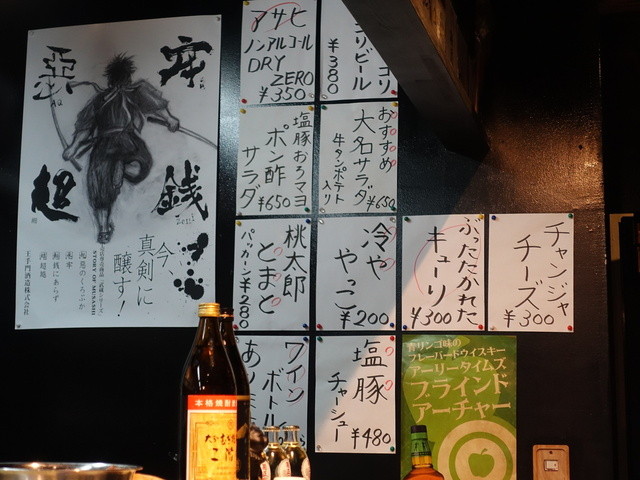 アサヒ
ノンアルコール
DRY
ZERO
¥350
ビール
¥380
塩豚おろマヨ
ポン酢
サラダ
¥650
おすすめ
大名サラダ
牛タンポテト
入り
¥650
桃太郎
とまと
¥280
冷や
やっこ
¥200
ぶったたかれた
キューリ
¥300
チャンジャ
チーズ
¥300
ワイン
ボトル
塩豚
チャーシュー
¥480
今、
真剣に
醸す!
STORY OF MUSASHI
玉手門酒造株式会社
銭
超
本格焼酎
青リンゴ味の
フレーバードウイスキー
アーリータイムズ
ブラインド
アーチャー